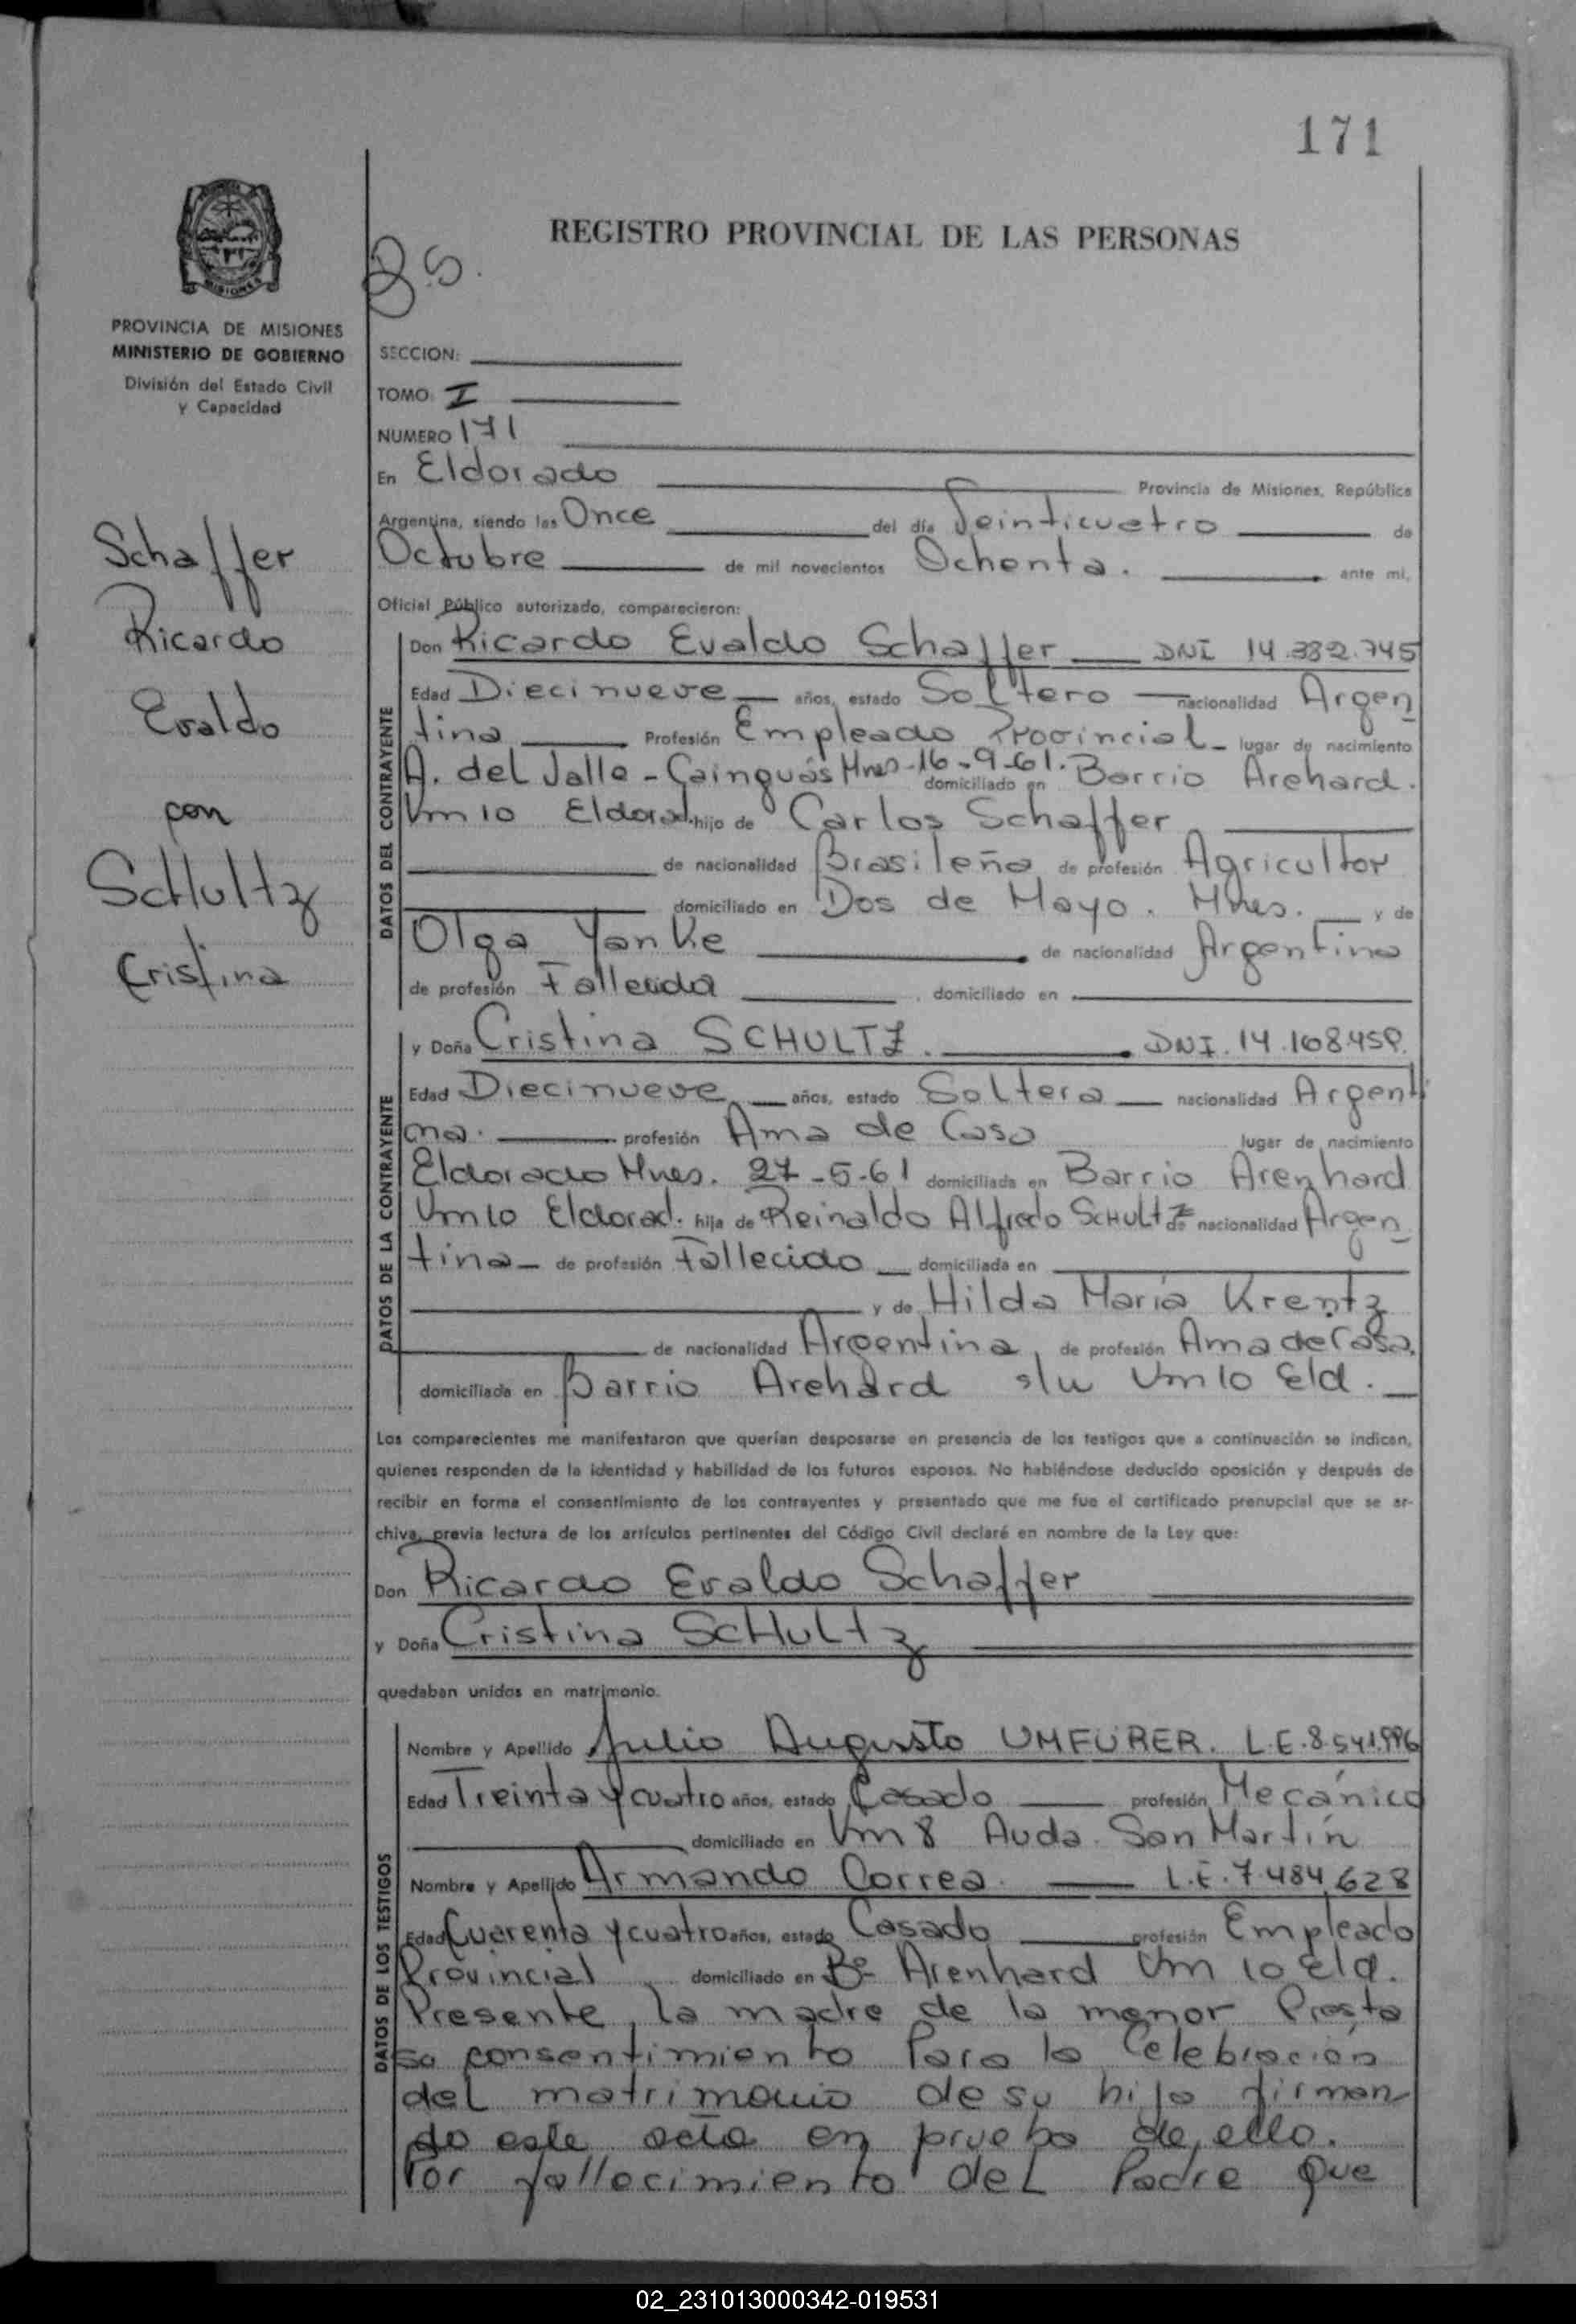 171
REGISTRO PROVINCIAL DE LAS PERSONAS
MISIONES
PROVINCIA DE MISIONES
MINISTERIO DE GOBIERNO
División del Estado Civil
y Capacidad
Schaffer
Ricardo
Evaldo
con
SCHultz
Cristina
SECCION:
TOMO: I
NUMERO 171
En Eldorado Provincia de Misiones, República
Argentina, siendo las Once del día Veinticuatro de
Octubre de mil novecientos Ochenta. ante mi,
Oficial Público autorizado, comparecieron:
DATOS DEL CONTRAYENTE
Don Ricardo Evaldo Schaffer DNI 14.382.745
Edad Diecinueve años, estado Soltero nacionalidad Argen
tina Profesión Empleado Provincial lugar de nacimiento
A. del Valle - Cainguás Mnes-16-9-61. domiciliado en Barrio Arehard.
Km 10 Eldorad. hijo de Carlos Schaffer
de nacionalidad Brasileña de profesión Agricultor
domiciliado en Dos de Mayo. Mnes. y de
Olga Yanke de nacionalidad Argentina
de profesión Fallecida, domiciliado en
DATOS DE LA CONTRAYENTE
y Doña Cristina SCHULTZ. DNI. 14.168.458.
Edad Diecinueve años, estado Soltera nacionalidad Argenti
na. profesión Ama de Casa lugar de nacimiento
Eldorado Mnes. 27-5-61 domiciliada en Barrio Arenhard
Km 10 Eldorad. hija de Reinaldo Alfredo SCHULTZ de nacionalidad Argen
tina de profesión Fallecido domiciliada en
y de Hilda María Krentz
de nacionalidad Argentina, de profesión Ama de Casa.
domiciliada en Barrio Arehard s/n Km 10 Eld.
Los comparecientes me manifestaron que querían desposarse en presencia de los testigos que a continuación se indican,
quienes responden de la identidad y habilidad de los futuros esposos. No habiéndose deducido oposición y después de
recibir en forma el consentimiento de los contrayentes y presentado que me fue el certificado prenupcial que se ar-
chiva, previa lectura de los artículos pertinentes del Código Civil declaré en nombre de la Ley que:
Don Ricardo Evaldo Schaffer
y Doña Cristina SCHultz
quedaban unidos en matrimonio.
DATOS DE LOS TESTIGOS
Nombre y Apellido Julio Augusto UMFÜRER. L.E. 8.541.996
Edad Treinta y cuatro años, estado Casado profesión Mecánico
domiciliado en Km 8 Avda. San Martín
Nombre y Apellido Armando Correa. L.E. 7.484.628
Edad Cuarenta y cuatro años, estado Casado profesión Empleado
Provincial domiciliado en Bº Arenhard Km 10 Eld.
Presente, la madre de la menor Presta
su consentimiento Para la Celebración
del matrimonio de su hija firman
do este acta en prueba de ello.
Por fallecimiento del Padre que
02_231013000342-019531